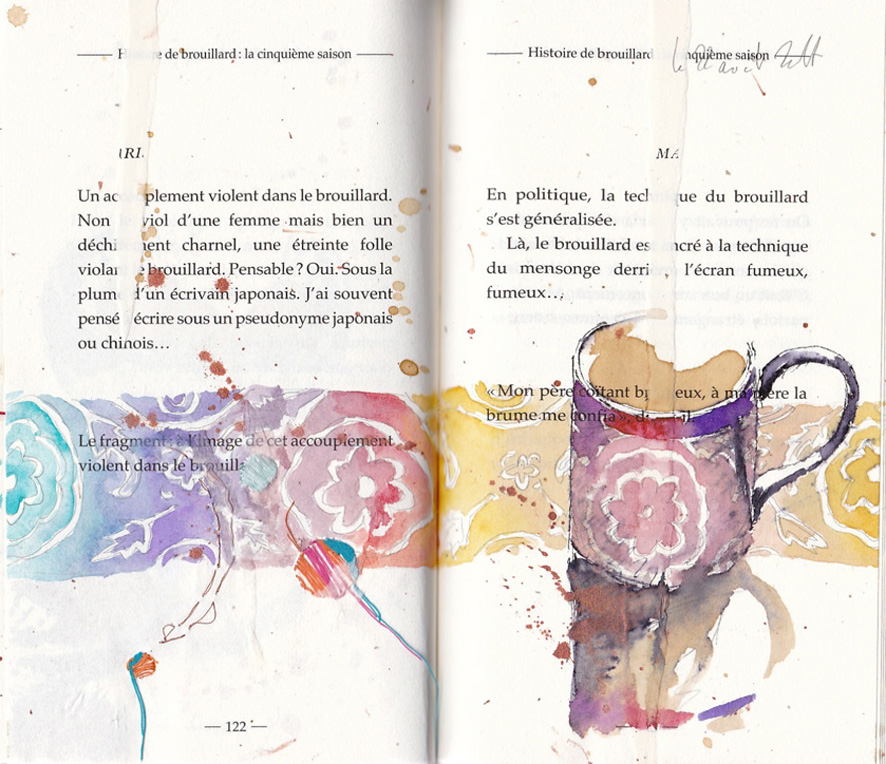 H de brouillard : la cinquième saison
ARI.
Un ac plement violent dans le brouillard.
Non viol d’une femme mais bien un
déchi ment charnel, une étreinte folle
violan brouillard. Pensable ? Oui. Sous la
plume d’un écrivain japonais. J’ai souvent
pensé écrire sous un pseudonyme japonais
ou chinois…
Le fragment : à l’image de cet accouplement
violent dans le brouilla
— 122 —
Histoire de brouillard nquième saison
le 22 août
MA
En politique, la tech que du brouillard
s’est généralisée.
Là, le brouillard es ncré à la technique
du mensonge derriè l’écran fumeux,
fumeux…
« Mon père coïtant b eux, à ma mère la
brume me confia », d il.